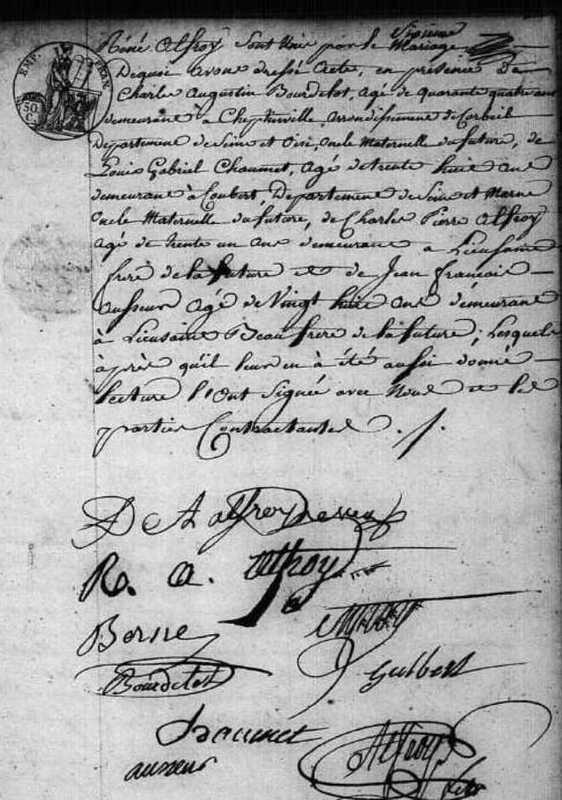 EMP. FRAN.
50 C.
Réné Alfroy Sont Unis par le Mariage
Dequoi avons dressé Acte, en présence De
Charles Augustin Bourdelot, agé de Quarante quatre ans
demeurant à Cheptainville arrondissement de Corbeil
Département de Seine et Oise, oncle Maternelle du future, de
Louis Gabriel Chaumet, agé de trente huit ans
demeurant à Coubert, Département de Seine et Marne
Oncle Maternelle du future, de Charles Pierre Alfroy
agé de trente un ans demeurant a Lieusaint
frere de la future et de Jean francois
ausseur agé de Vingt huit ans demeurant
à Lieusaint Beau frere de la future; Lesquels
après qu'il leur en à été aussi donné
Lecture l'ont Signée avec Nous et les
parties Contractantes ./.
D A alfroy
R. A. Alfroy
Berne
Bourdelot
Guibert
Chaumet
Alfroy
ausseur